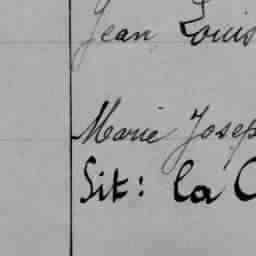 Jean Louis
Marie Josep
Sit: la C